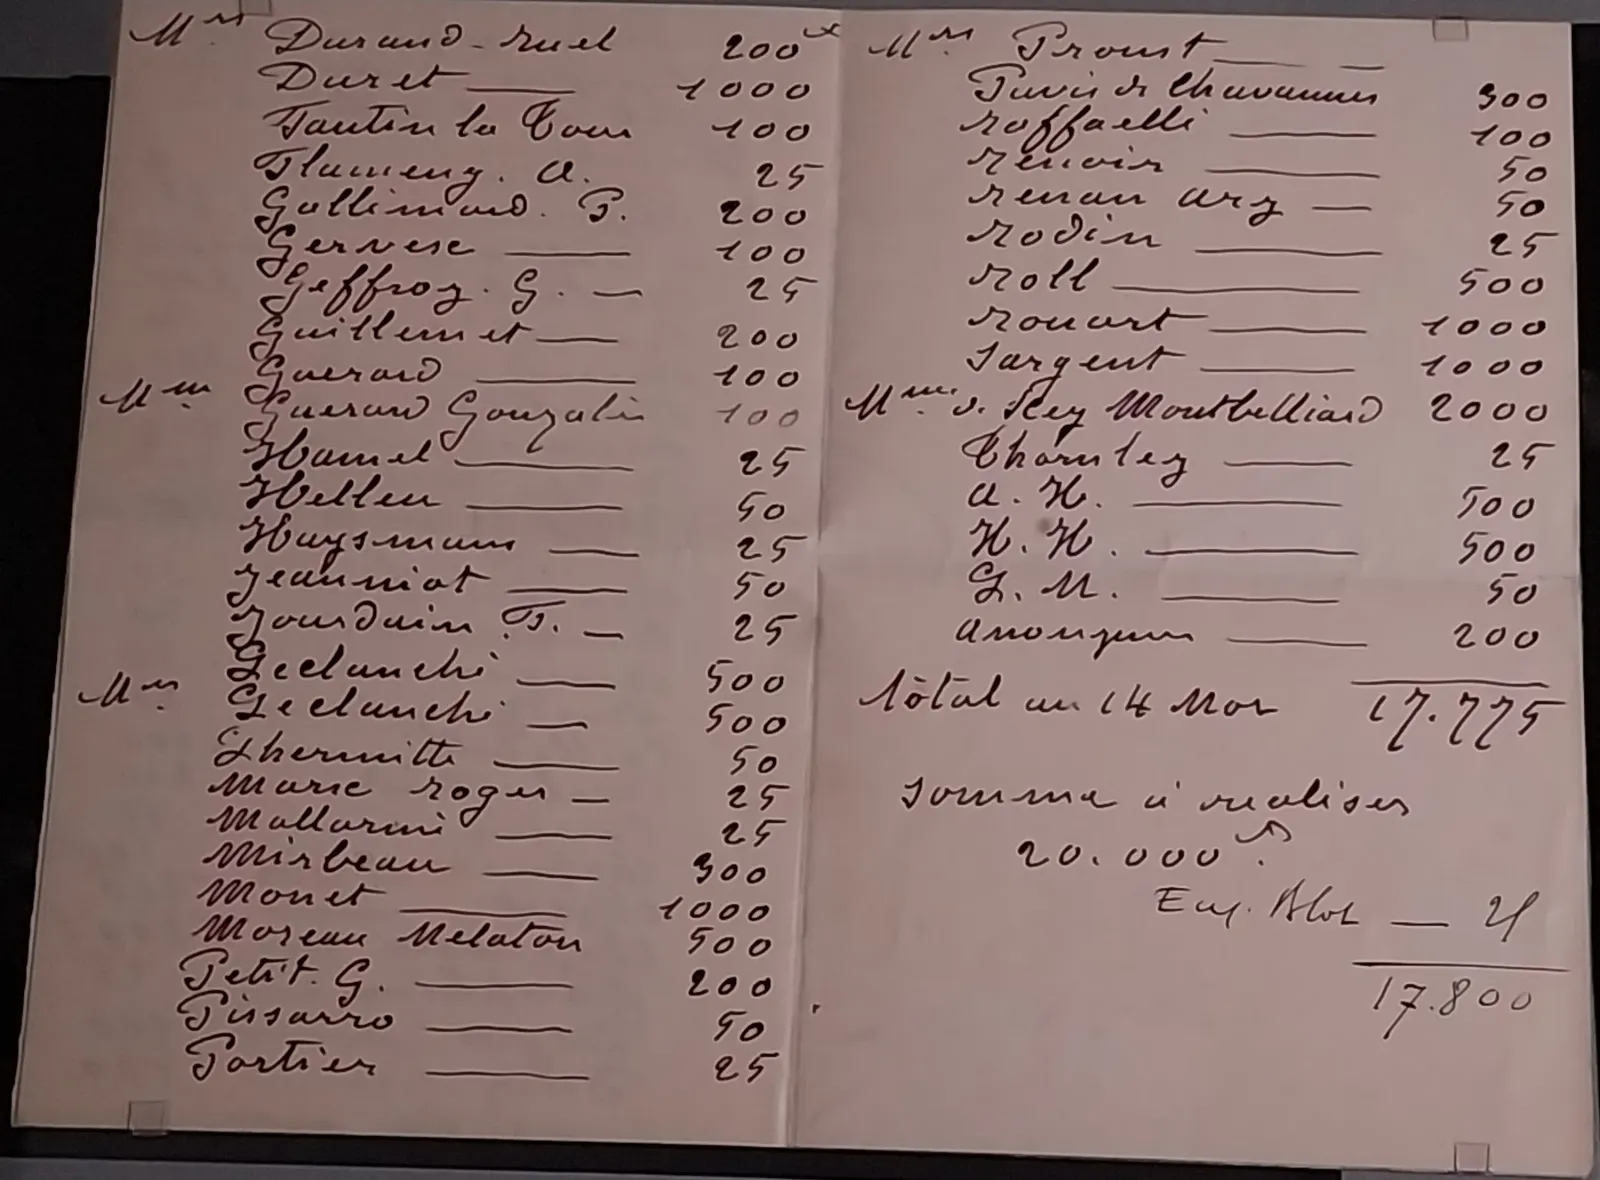 Mrs Durand-Ruel 200 fr
Duret 1000
Fantin la Tour 100
Flameng. A. 25
Gallimard. P. 200
Gervex 100
Geffroy. G. 25
Guillemet 200
Guerard 100
Mme Guerard Gonzalès 100
Hamel 25
Helleu 50
Huysmans 25
Jeanniot 50
Jourdain F. 25
Leclanché 500
Mrs Leclanché 500
Lhermitte 50
Marx roger 25
Mallarmé 25
Mirbeau 300
Monet 1000
Moreau Nelaton 500
Petit. G. 200
Pissarro 50
Portier 25
Mrs Proust
Puvis de Chavannes 300
Raffaelli 100
Renoir 50
Renan Ary 50
Rodin 25
Roll 500
Rouart 1000
Sargent 1000
Mme d. Scey Montbelliard 2000
Thornley 25
A. H. 500
H. H. 500
L. M. 50
anonyme 200
total au 14 Mar 17.775
somme à realiser
20.000 fr.
Eug. Blot 25
17.800